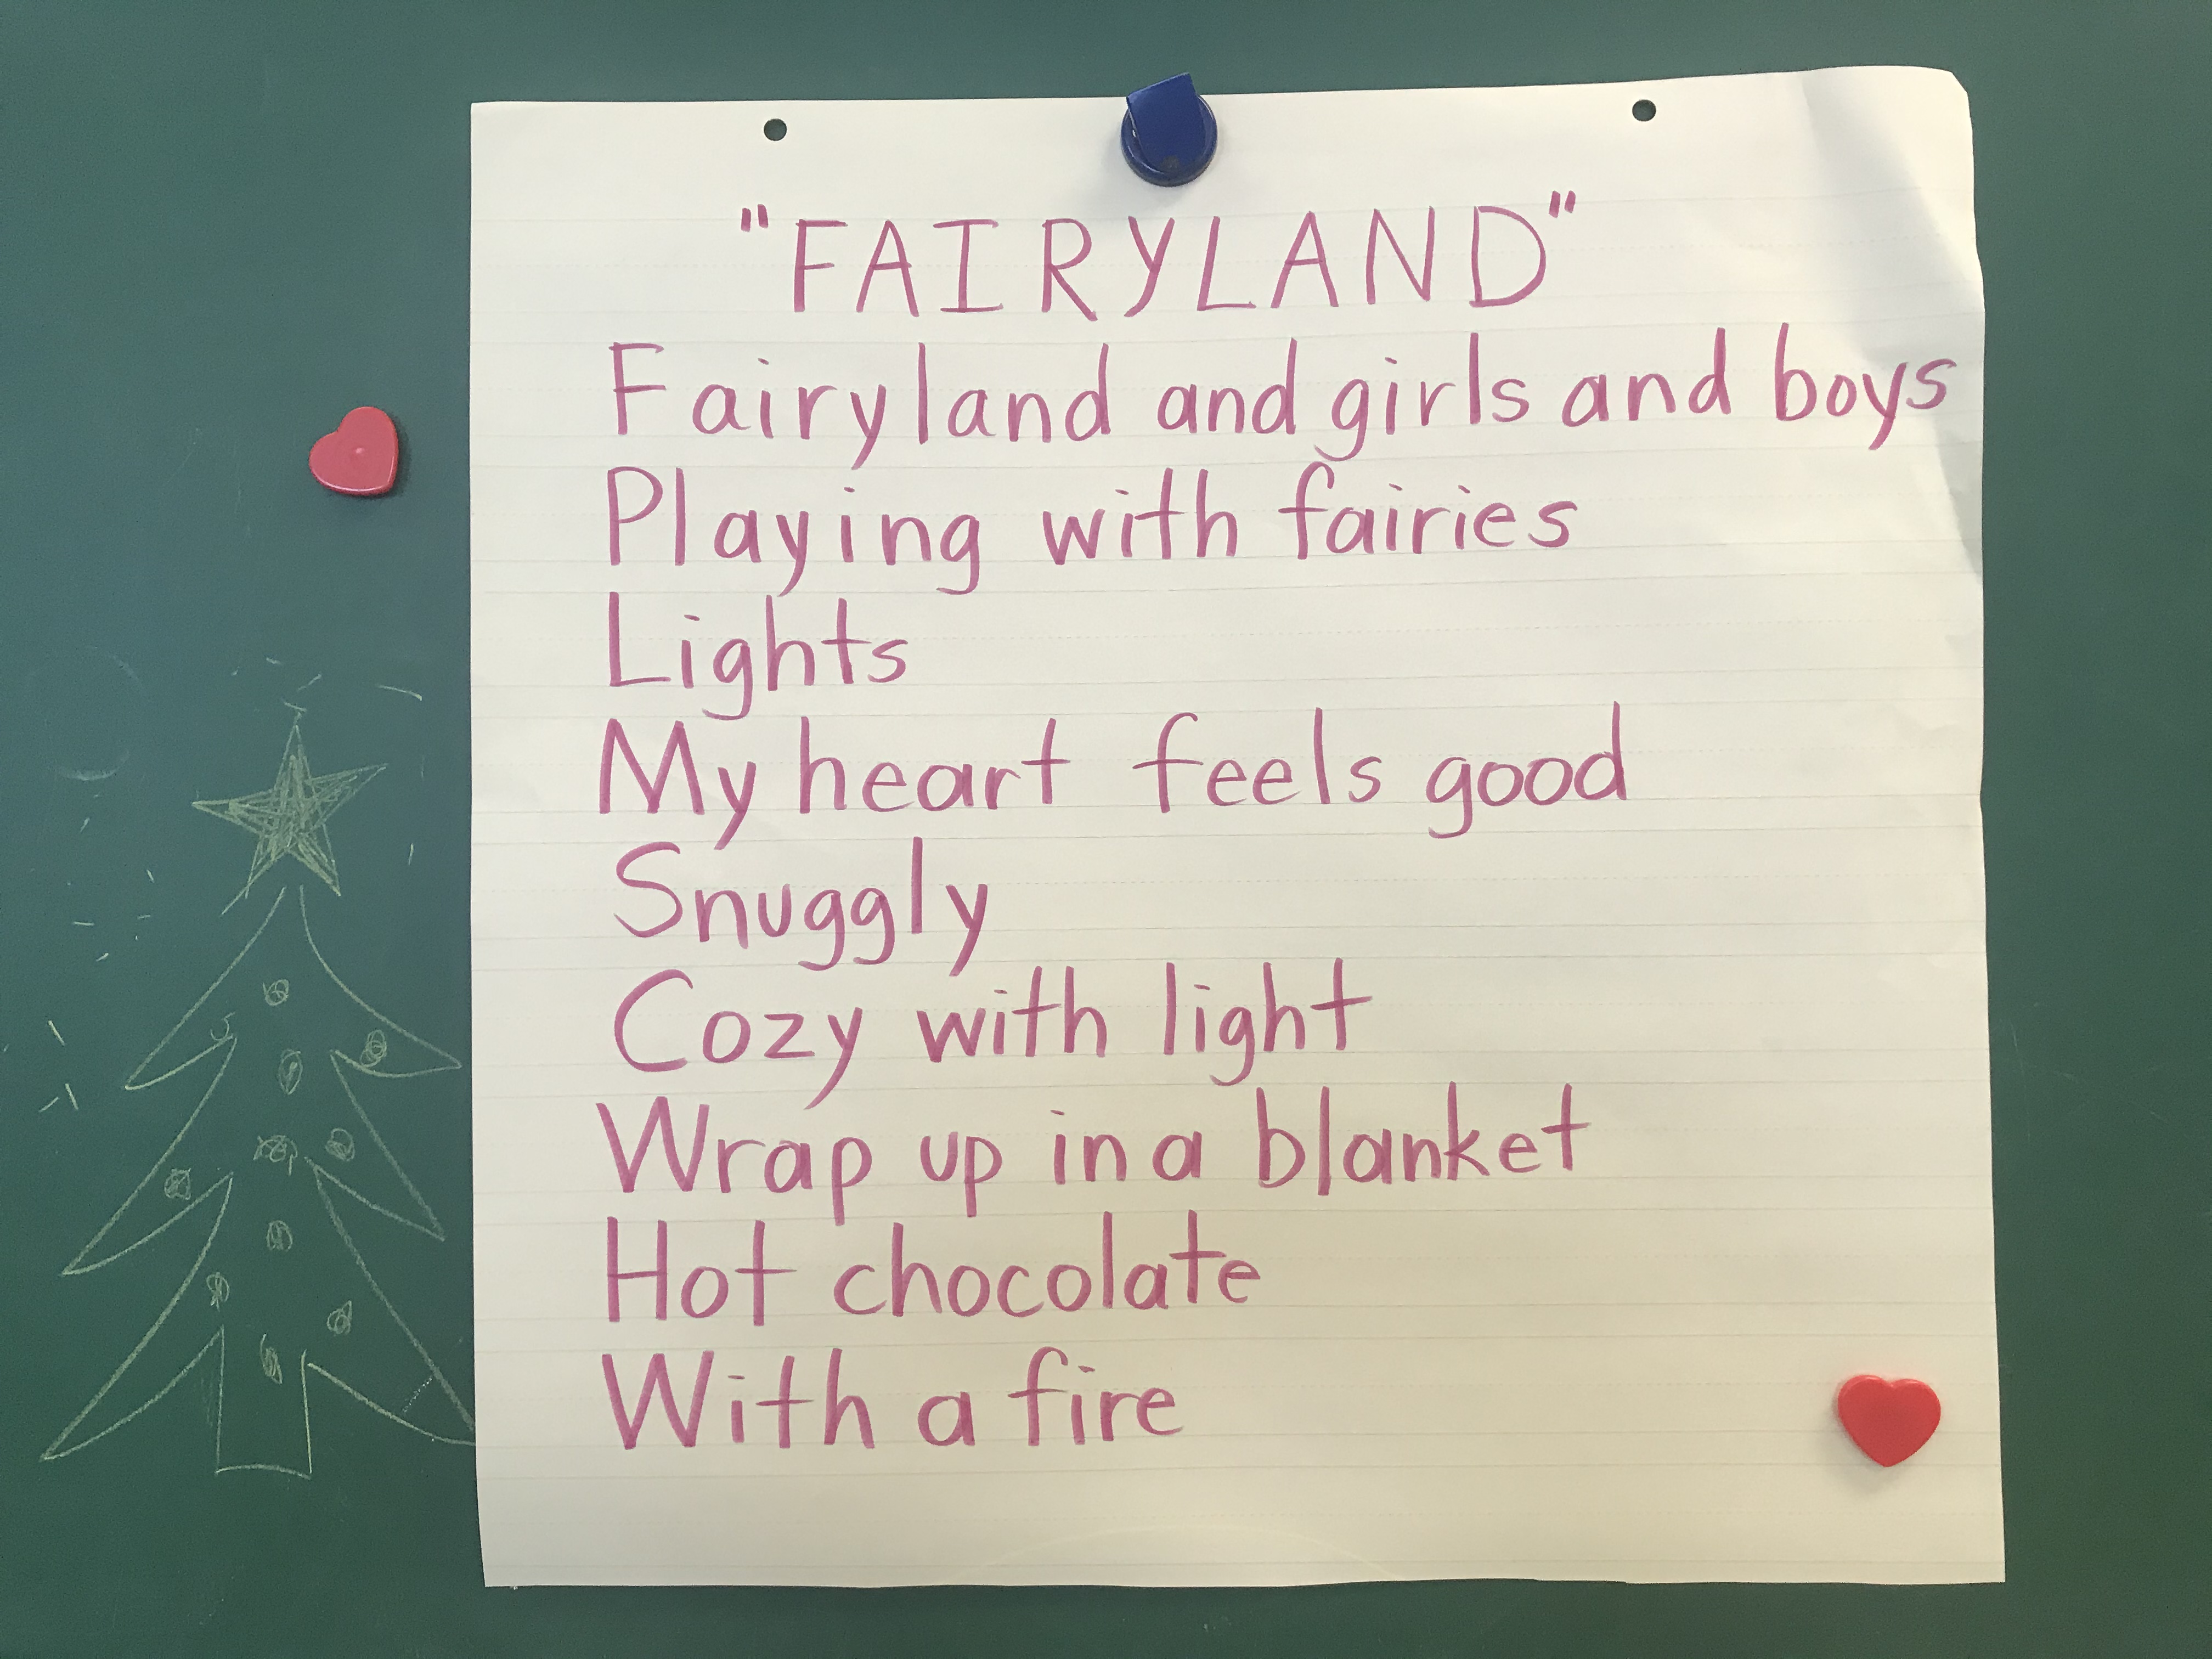 "FAIRYLAND"
Fairyland and girls and boys
Playing with fairies
Lights
My heart feels good
Snuggly
Cozy with light
Wrap up in a blanket
Hot chocolate
With a fire